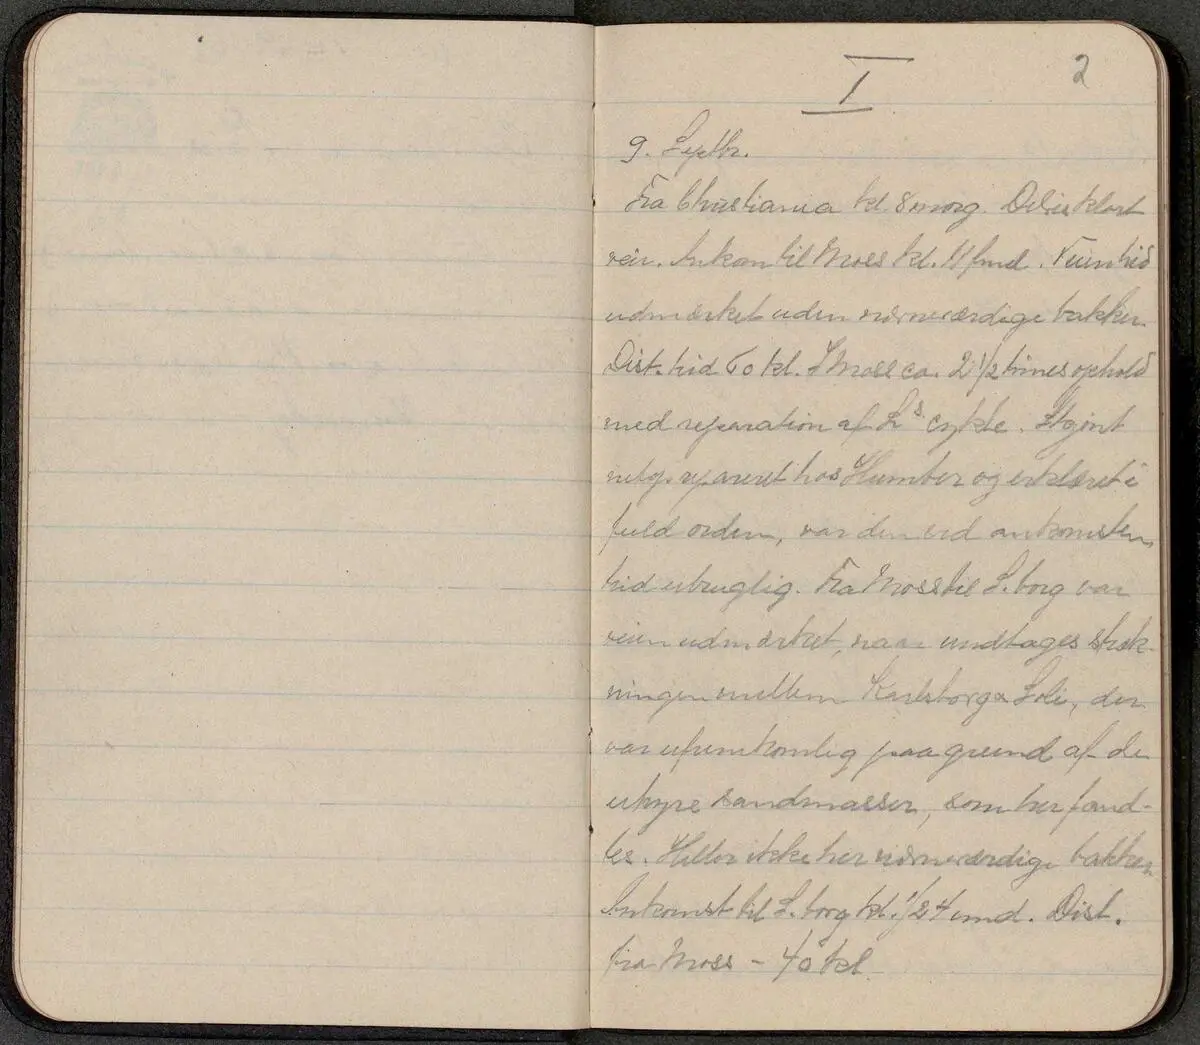 I
2
9. Septbr.
Fra Christiania kl. 8 morg. Delvis klart
veir. Ankom til Moss kl. 11 fmd. Veien hid
udmærket uden nævneværdige bakker.
Dist. hid 60 kl. I Moss ca. 2 1/2 times ophold
med reparation af L's cykle. Skjønt
nylig repareret hos Humber og erklæret i
fuld orden, var den ved ankomsten
hid ubruglig. Fra Moss til S.borg var
veien udmærket, naar undtages stræk-
ningen mellem Karlsborg & Soli, der
var ufremkomlig paa grund af de
uhyre sandmasser, som her fand-
tes. Heller ikke her nævneværdige bakker.
Ankomst til S.borg kl. 1/2 4 emd. Dist.
fra Moss - 40 kl.